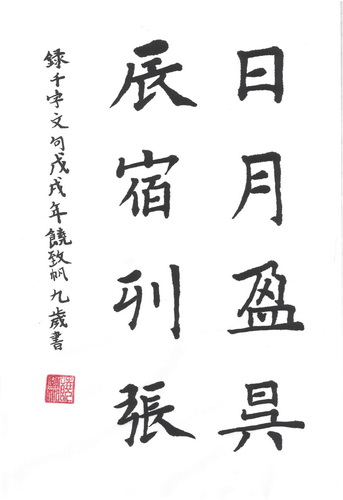 日月盈昃
辰宿列張
錄千字文句戊戌年饒致帆九歲書